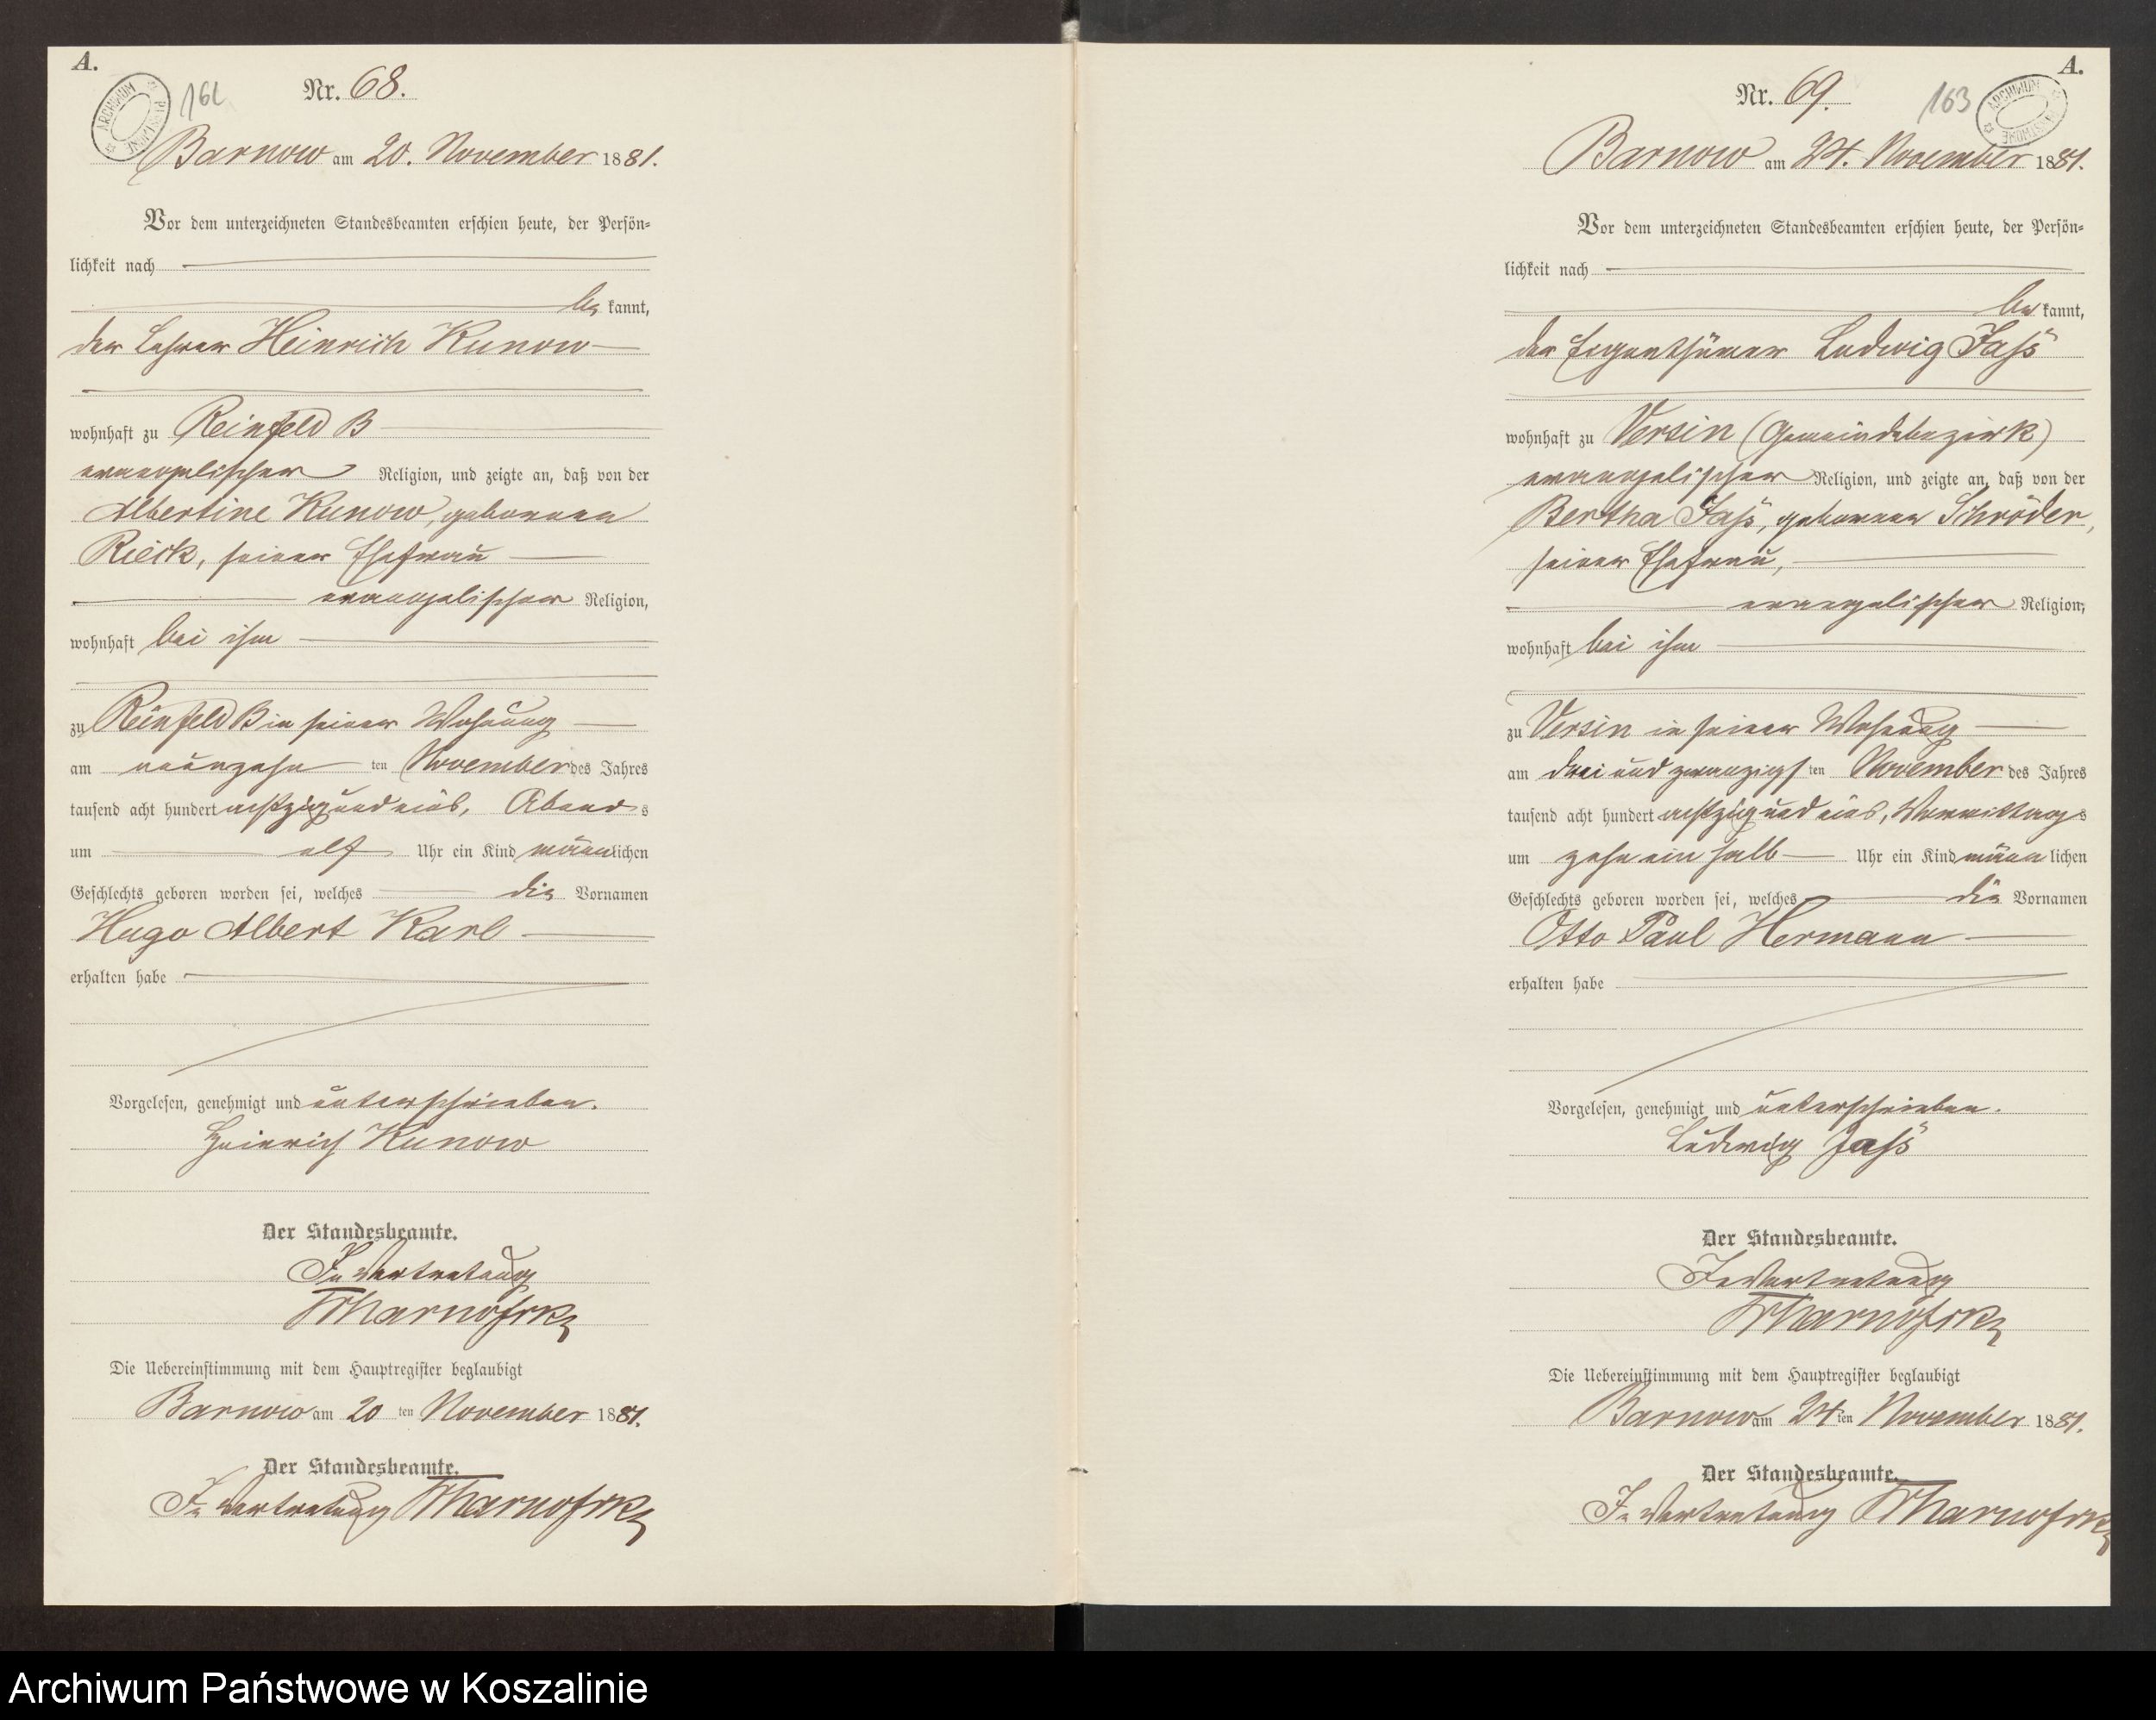 A.
ARCHIWUM PAŃSTWOWE
Nr. 68.
Barnow am 20. November 1881.
Vor dem unterzeichneten Standesbeamten erschien heute, der Persön-
lichkeit nach
be kannt,
der Lehrer Heinrich Kunow
wohnhaft zu Reinfeld B
evangelischer Religion, und zeigte an, daß von der
Albertine Kunow, geborenen
Rieck, seiner Ehefrau
evangelischer Religion,
wohnhaft bei ihm
zu Reinfeld B in seiner Wohnung
am neunzehn ten November des Jahres
tausend acht hundert achtzig und eins, Abends
um elf Uhr ein Kind männlichen
Geschlechts geboren worden sei, welches die Vornamen
Hugo Albert Karl
erhalten habe
Vorgelesen, genehmigt und unterschrieben.
Heinrich Kunow
Der Standesbeamte.
In Vertretung
Die Uebereinstimmung mit dem Hauptregister beglaubigt
Barnow am 20 ten November 1881.
Der Standesbeamte.
In Vertretung
A.
163
ARCHIWUM PAŃSTWOWE
Nr. 69.
Barnow am 24. November 1881.
Vor dem unterzeichneten Standesbeamten erschien heute, der Persön-
lichkeit nach
be kannt,
der Eigenthümer Ludwig Jaß
wohnhaft zu Versin (Gemeindebezirk)
evangelischer Religion, und zeigte an, daß von der
Bertha Jaß, geborenen Schröder,
seiner Ehefrau,
evangelischer Religion,
wohnhaft bei ihm
zu Versin in seiner Wohnung
am drei und zwanzigsten November des Jahres
tausend acht hundert achtzig und eins, Vormittags
um zehn ein halb Uhr ein Kind männlichen
Geschlechts geboren worden sei, welches die Vornamen
Otto Paul Hermann
erhalten habe
Vorgelesen, genehmigt und unterschrieben.
Ludwig Jaß
Der Standesbeamte.
In Vertretung
Die Uebereinstimmung mit dem Hauptregister beglaubigt
Barnow am 24 ten November 1881.
Der Standesbeamte.
In Vertretung
Archiwum Państwowe w Koszalinie